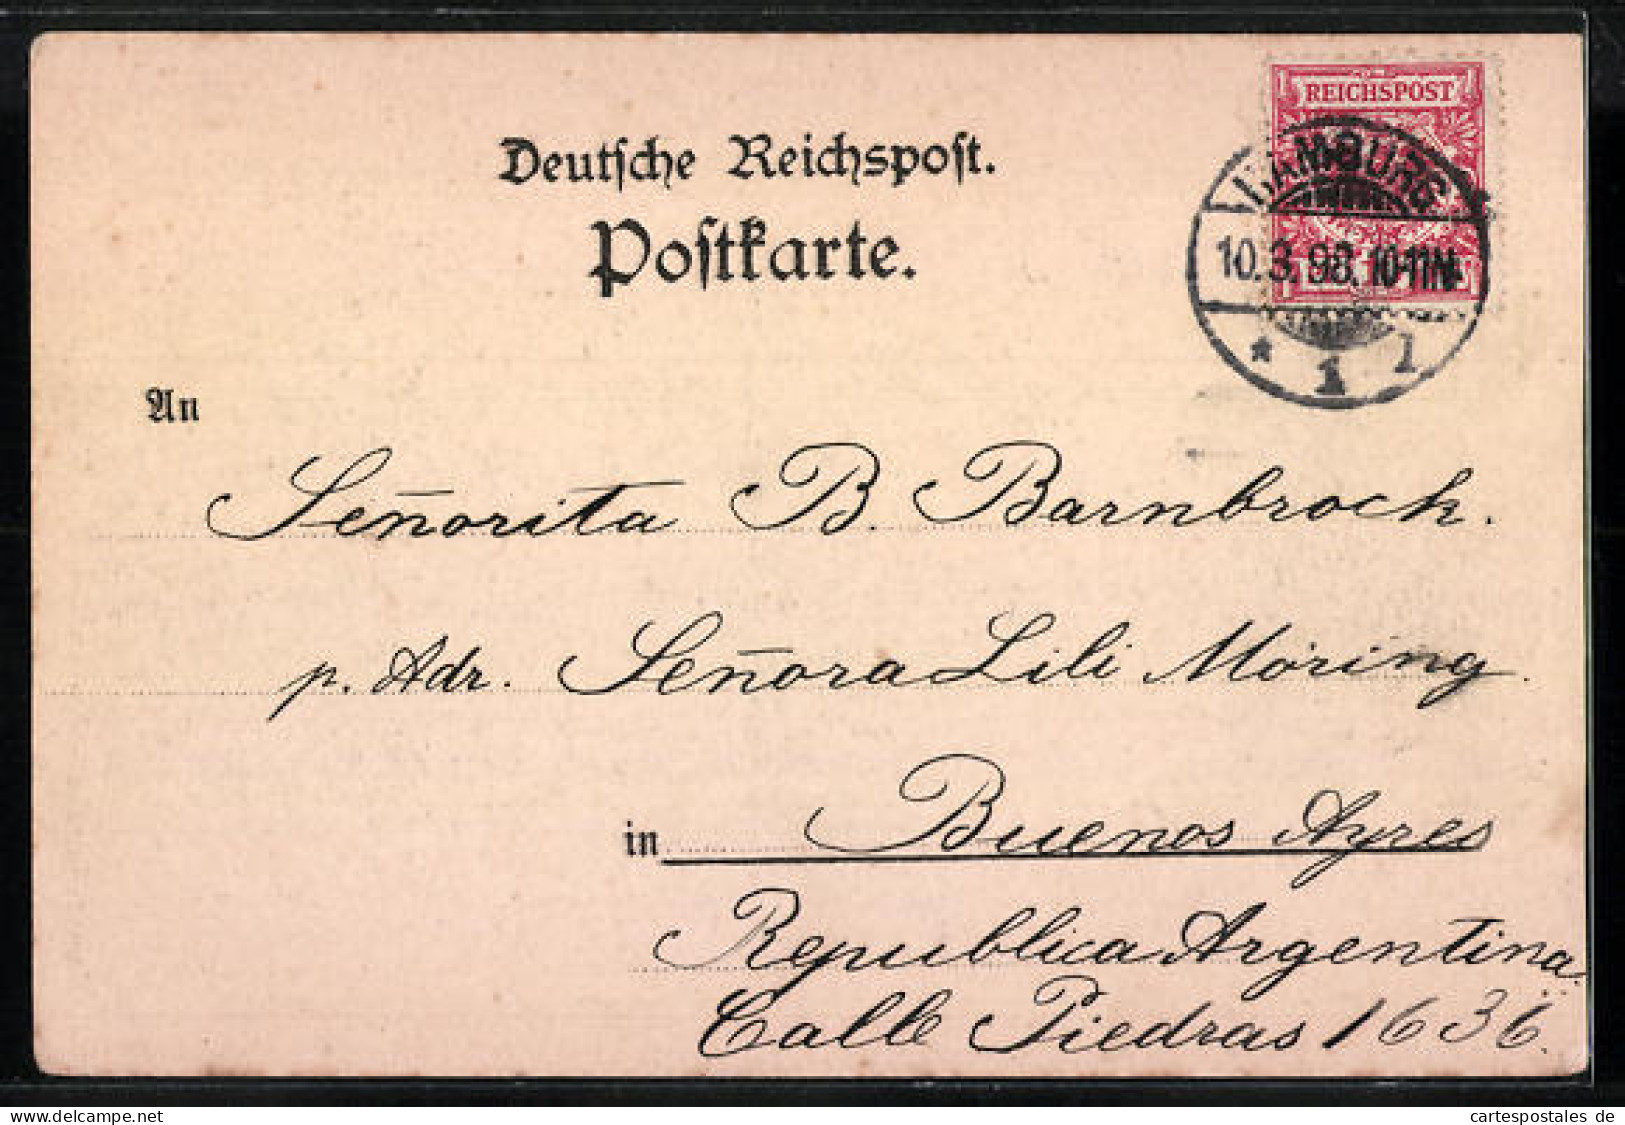 Deutsche Reichspost.
Postkarte.
REICHSPOST
HAMBURG
10.3.98. 10-11N.
* 1 l
An
Señorita B. Barnbrock.
p. Adr. Señora Lili Möring.
in Buenos Ayres
Republica Argentina
Calle Piedras 1636.
cartespostales de